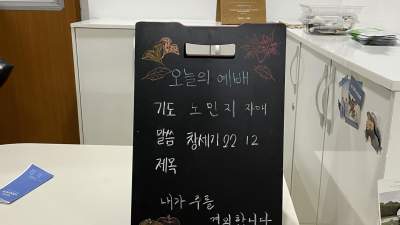 오늘의 예배
기도 노민지 자매
말씀 창세기 22 12
제목
내가 주를
경외합니다